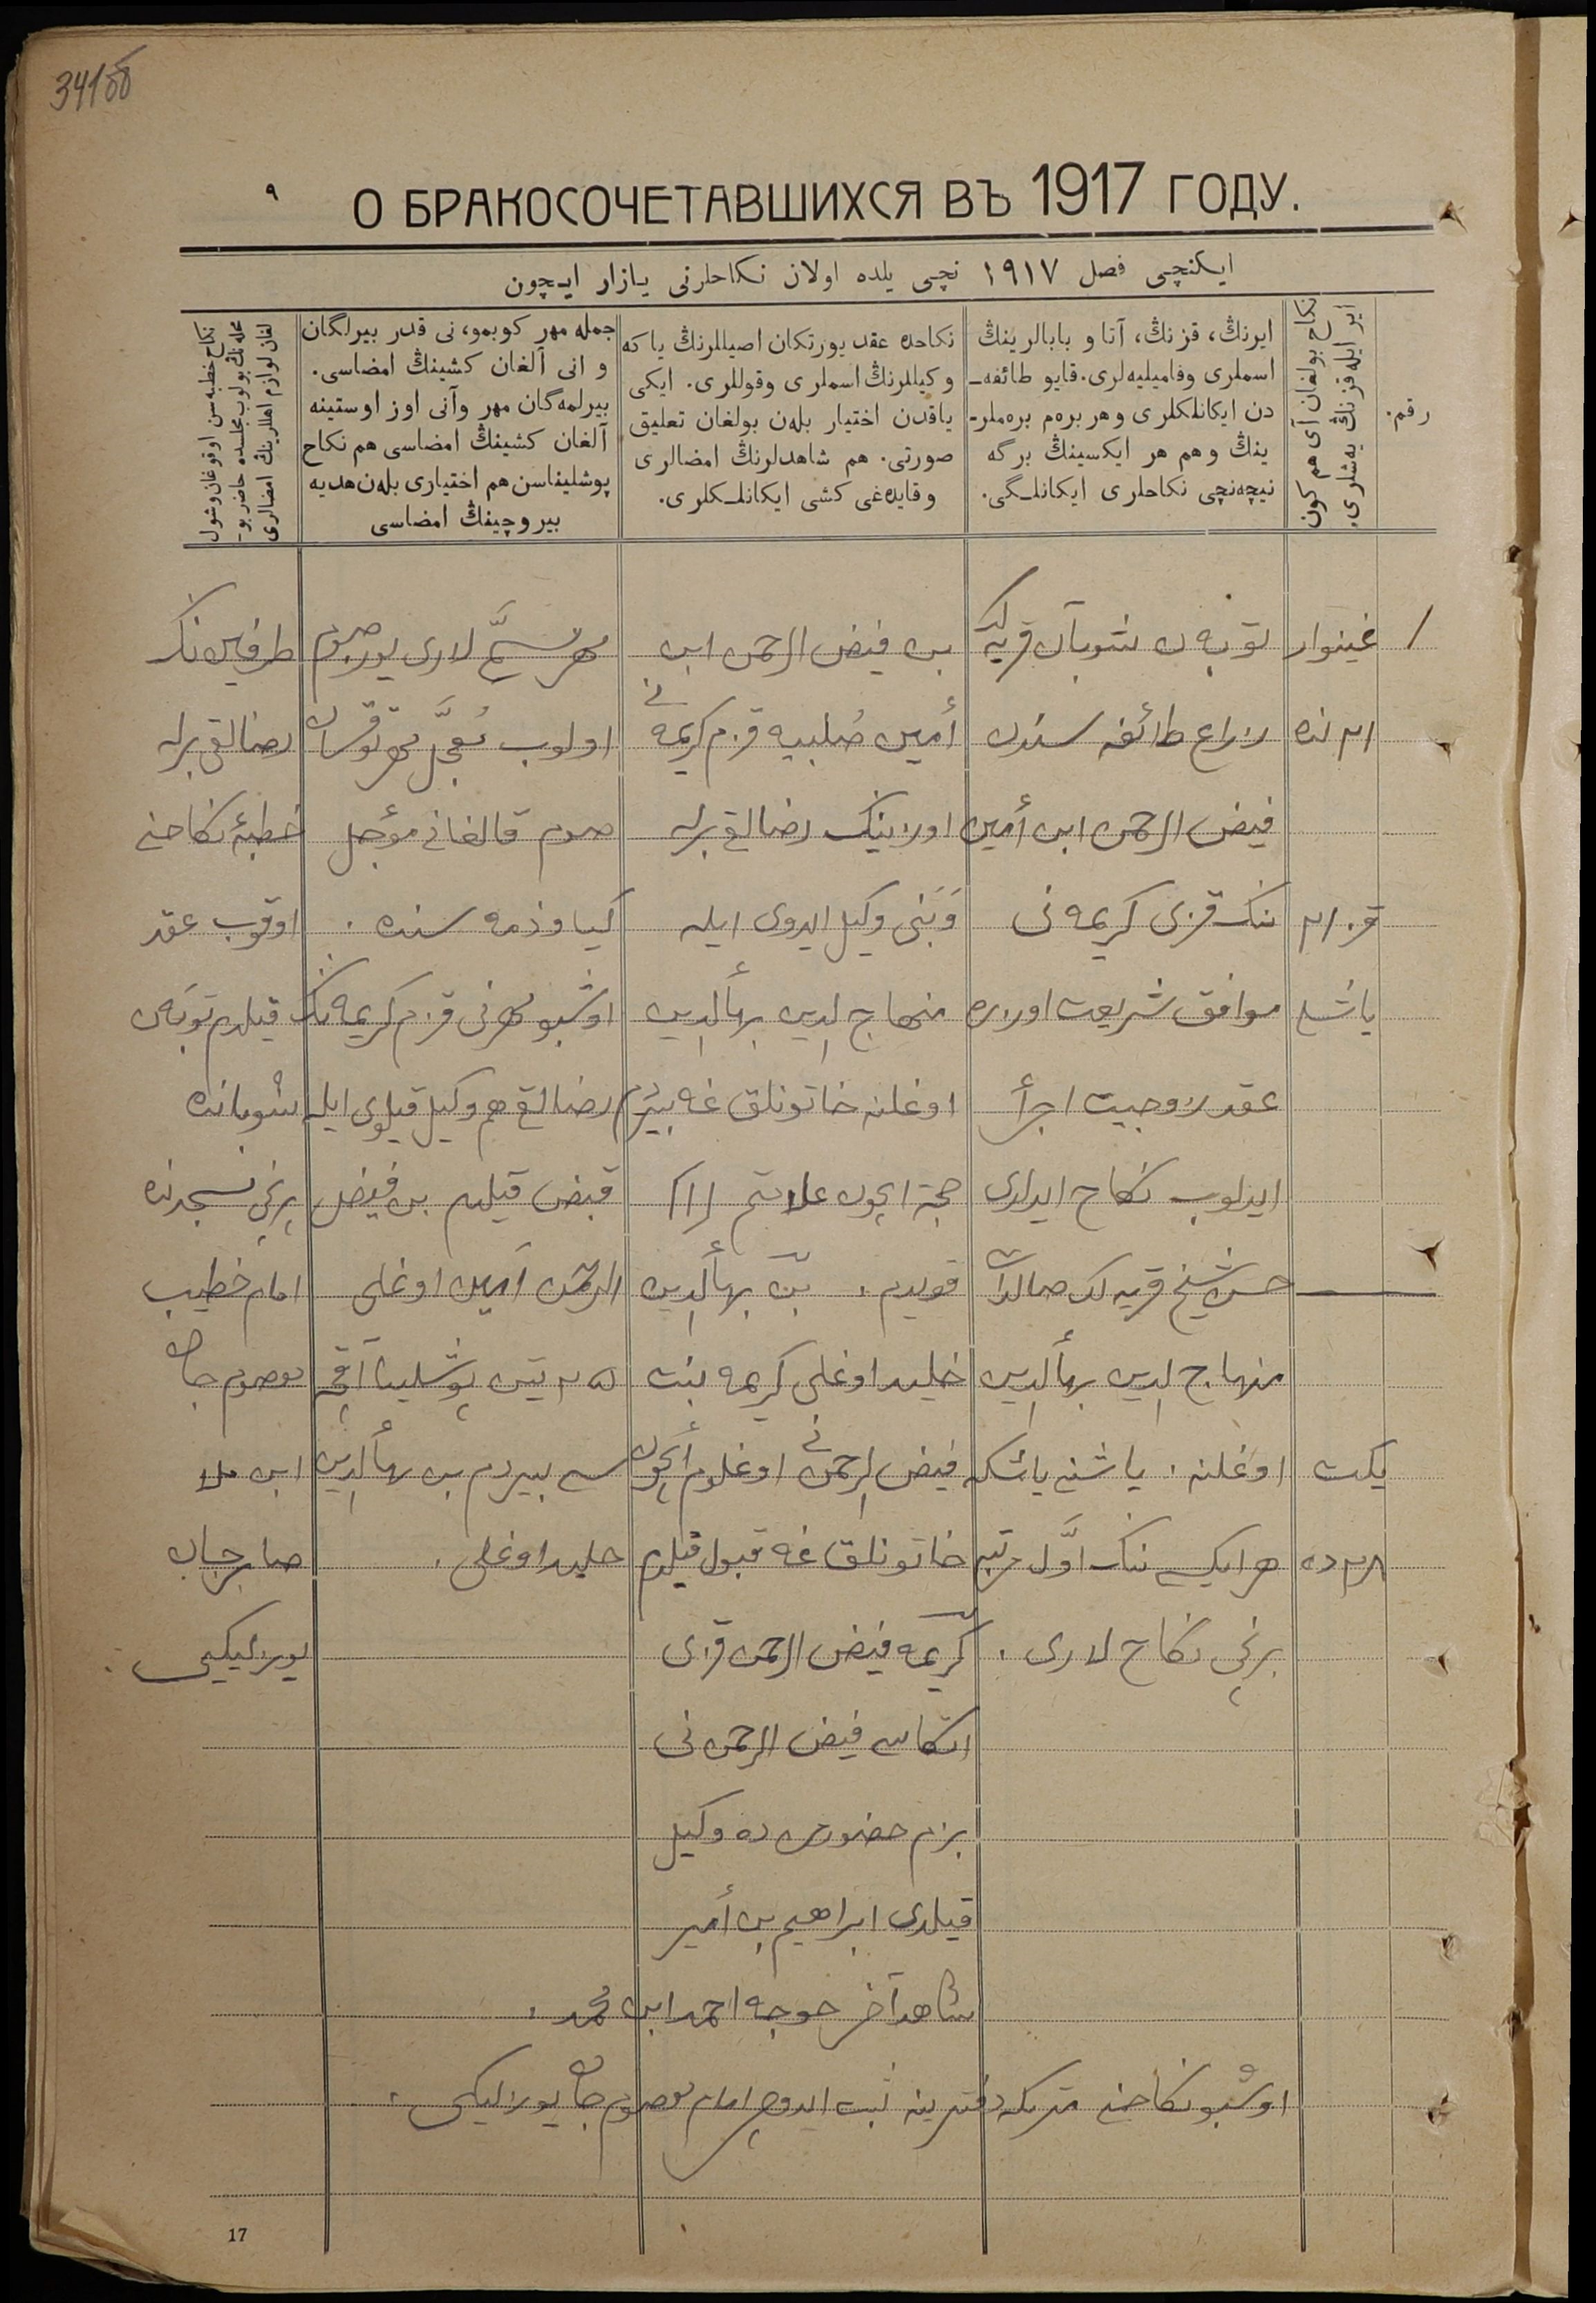 341об
٩
О БРАКОСОЧЕТАВШИХСЯ ВЪ 1917 ГОДУ.
ایكنچی فصل ١٩١٧ نچی یلده اولان نكاحلرنی یازار ایـچون
رقم.
نكاح بولغان آی هم كون
ایر ایله قزنڭ یه‌شلری.
ایرنڭ، قزنڭ، آتا و بابالرینڭ
اسملری وفامیلیه‌لری. قایو طائفه‌ـ
دن ایكانلكلری و هر بره‌م بره‌ملرـ
ینڭ و هم هر ایكسینڭ برگه
نیچه‌نچی نكاحلری ایكانلـگی.
نكاحده عقد یورتكان اصیللرنڭ یا كه
وكیللرنڭ اسملری وقوللری. ایكی
یاقدن اختیار بله‌ن بولغان تعلیق
صورتی. هم شاهدلرنڭ امضالری
وقایده‌غی كشی ایكانلـكلری.
جمله مهر كوبمو، نی قدر بیرلگان
و انی آلغان كشینڭ امضاسی.
بیرلمه‌گان مهر وآنی اوز اوستینه
آلغان كشینڭ امضاسی هم نكاح
پوشلیناسن هم اختیاری بله‌ن هدیه
بیر وچینڭ امضاسی
نكاح خطبه سن اوقوغان وشول
محله نڭ بولوب مجلسده حاضر بوـ
لغان لوازم اهللرینڭ امضالری
١
غینوار
٢١ نده
قز ٢١
یاشلـ
یكت
٢٨ ده
توبه‌ن شوبان قریه لك
زراع طائفه سندن
فیض الرحمن ابن أمین
ننك قزی كریمه نی
موافق شریعت اوزره
عقد زوجیت اجرأ
ایدلوب نكاح ایدلدی
حسن شیخ قریه لك صالدات
منهاج الدین بهأالدین
اوغلنه. یاشنه یاشكه
هر ایكی سی ننك اوّل مرتبه
برنچی نكاح لاری.
بن فیض الرحمن ابن
أمین صُلبیه قزم كریمه نی
اوزینك رضالقی برله
وَبَنی وكیل ایدوی ایله
منهاج الدین بهأالدین
اوغلنه خاتونلق غه بیردم
حجة ایچون علامتم
قویدم. بن بهأالدین
خلید اوغلی كریمه بنت
فیض الرحمن نی اوغلوم أیچون
خاتونلق غه قبول قیلدم
كریمه فیض الرحمن قزی
اتكاسی فیض الرحمن نی
بزم حضورمزده وكیل
قیلدی ابراهیم بن أمیر
شاهد آخر خوجه احمد ابن محمد.
مهر مسمَّی لاری یوز صوم
اولوب مُعَجَّل مهر توقسان
صوم قالغانی مؤجل
كیاو ذمه سنده.
اوشبو مهرنی قزم كریمه ننك
رضالقی هم وكیل قیلوی ایله
قبض قیلدم بن فیض
الرحمن أمین اوغلی
٢٥ تین پوشلینا آقچه
سی بیردم بن بهأالدین
خلید اوغلی.
طرفین ننك
رضالقی برله
خطبۀ نكاحنی
اوقوب عقد
قیلدم توبه‌ن
شوبانده
برنچی مسجدنده
امام خطیب
معصوم جان
ابن ملا
صابرجان
یوزلیكی.
اوشبو نكاحنی متریكه دفترینه ثبت ایدوچی امام معصوم جان یوزلیكی.
17